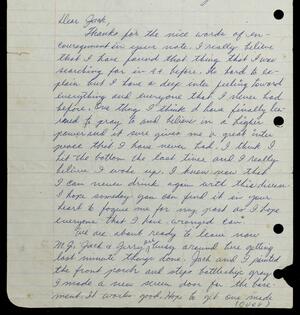 Dear Jack,
Thanks for the nice words of en-
couragement in your note. I really believe
that I have found that thing that I was
searching for in A.A. before. Its hard to ex-
plain but I have a deep inter feeling toward
everything and everyone that I never had
before. One thing I think I have finally le-
arned to pray to and believe in a higher
power and it sure gives me a great inter
peace that I have never had. I think I
hit the bottom the last time and I really
believe I woke up. I know now that
I can never drink again with this disease.
I hope someday you can find it in your
heart to forgive me for my past as I hope
everyone that I have wronged can.
We are about ready to leave now
M.J. Jack & Gerry are busy around here getting
last minute things done. Jack and I painted
the front porch and steps battleship gray.
I made a new screen door for the base-
ment. It works good. Hope to get one made
(over)